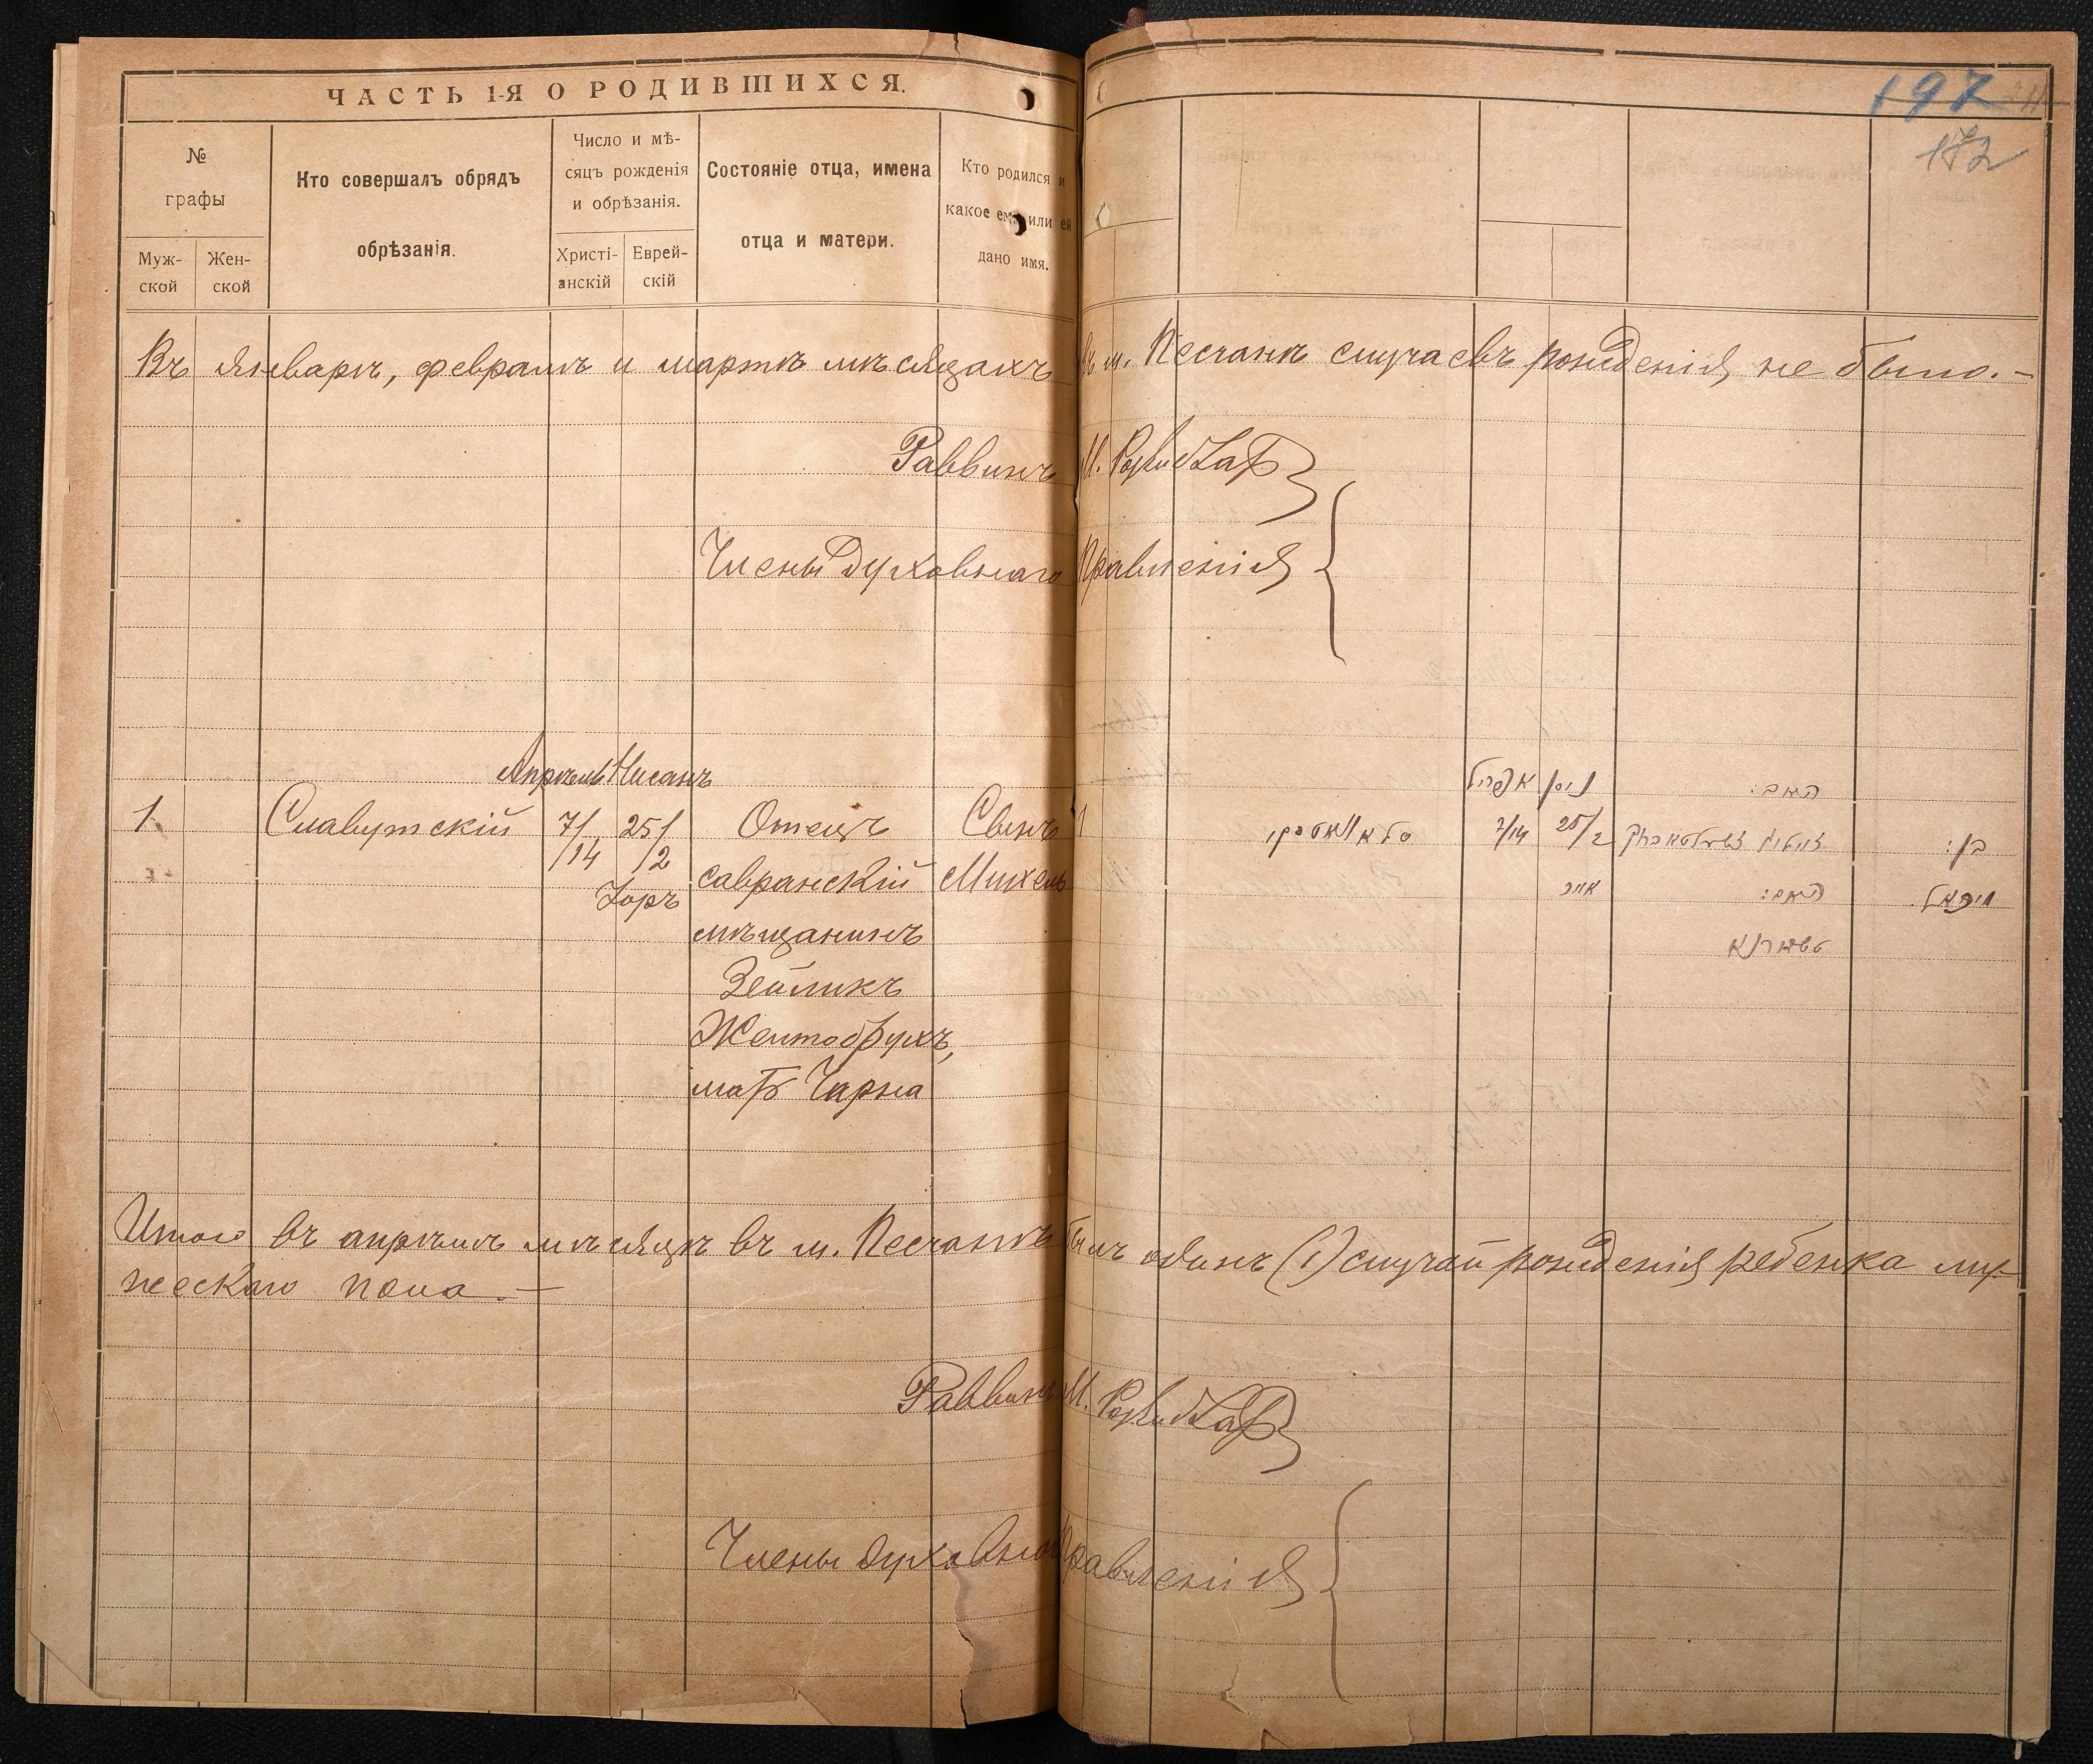 ЧАСТЬ 1-Я О РОДИВШИХСЯ.
197
172
№ графы
Муж-ской
Жен-ской
Кто совершалъ обрядъ
обрѣзанія.
Число и мѣ-
сяцъ рожденія
и обрѣзанія.
Христі-анскій
Еврей-скій
Состояніе отца, имена
отца и матери.
Кто родился и
какое ему или ей
дано имя.
Въ январѣ, февралѣ и мартѣ мѣсяцахъ въ м. Песчанѣ случаевъ рожденія не было.-
Раввинъ М.
Члены Духовнаго Правленія
Апрѣль Нисанъ ניסן אפריל האב:
1 Славутскій 7/ 25/ Отецъ Сынъ 1 7/14 25/2 בן:
/14 /2
Іоръ савранскій Михель אייר האם: מיכאל
мѣщанинъ
Зейликъ
Желтобрухъ,
мать Чарна
Итого въ апрѣлѣ мѣсяцѣ въ м. Песчанѣ былъ одинъ (1) случай рожденія ребенка му-
жескаго пола.-
Раввинъ М.
Члены духовнаго Правленія